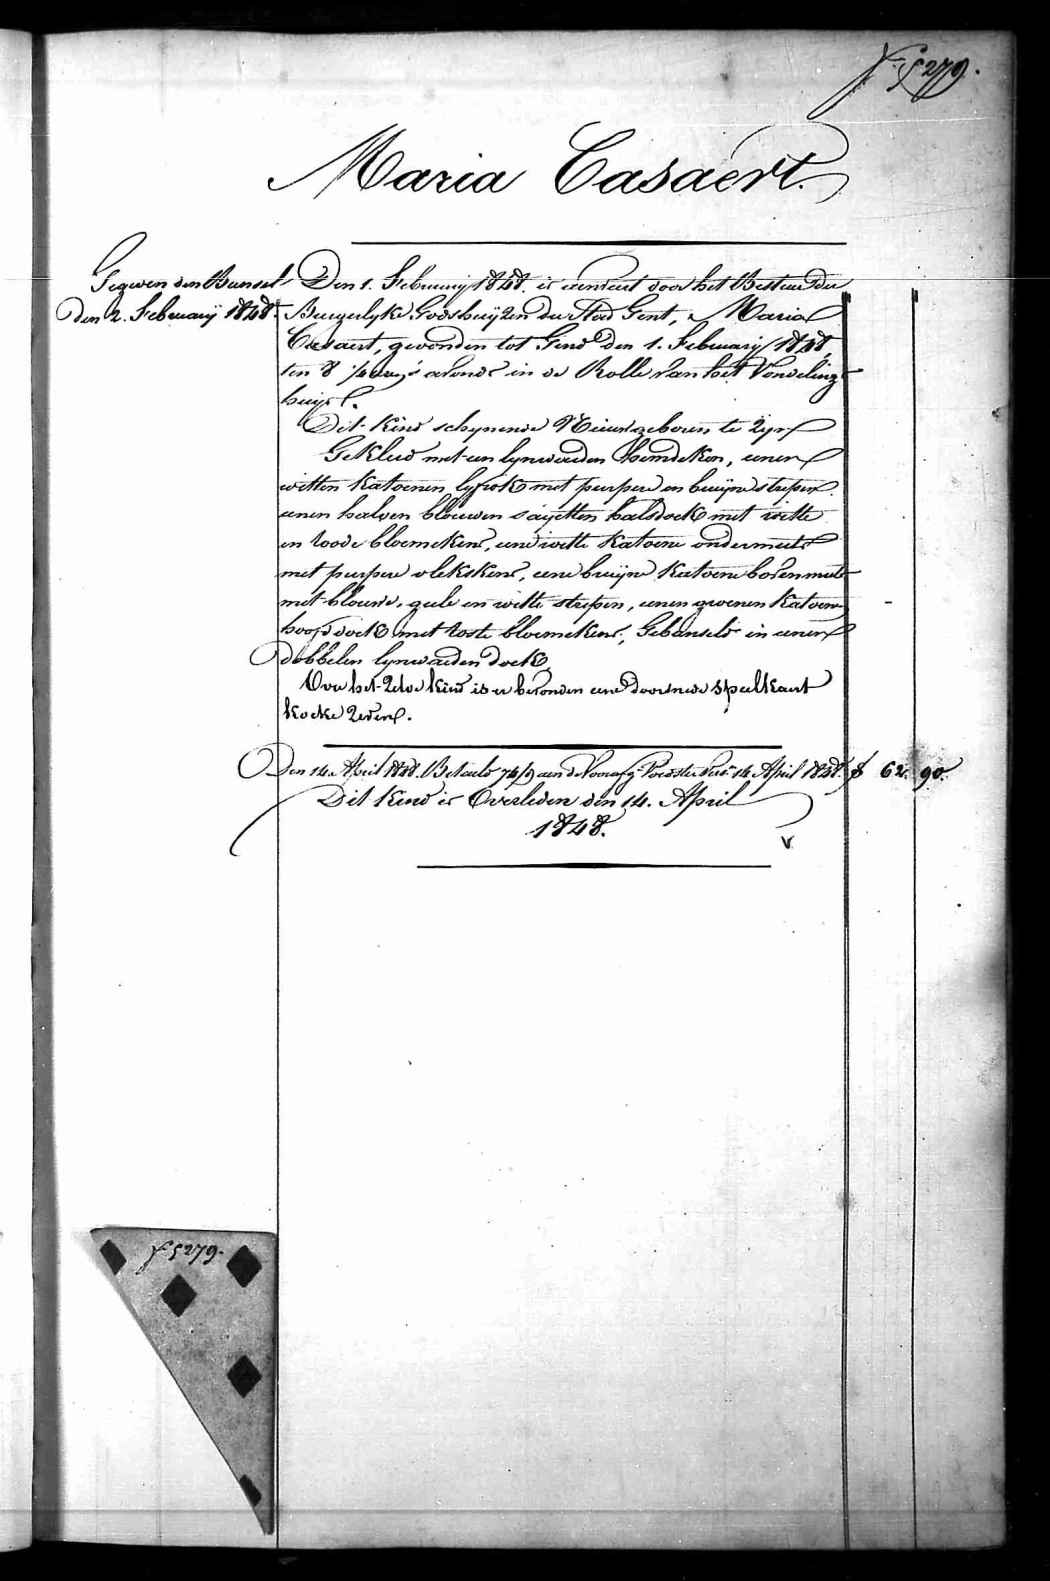 F. f 279.
Maria Casaert.
Gegeven den Bunsel
den 2. February 1848.
Den 1. February 1848. is aenveert door het Bestuer der
Burgerlyke Godshuijzen der stad Gent, Maria
Casaert, gevonden tot Gend den 1. February 1848,
ten 8 's avonds in de Rolle van het Vondeling
huijs.
Dit kind schynende Nieuwgeboren te zyn
Gekleed met een lynwaeden hemdeken, eenen
witten katoenen lyfrok met purpere en bruijne strepen.
eenen halven blouwen sayetten halsdoek met witte
en roode bloemekens, eene witte katoene ondermuts
met purpere vlekskens, eene bruijne katoene bovenmuts
met blouwe, gele en witte strepen, eenen groenen katoenen
hoofddoek met roste bloemekens, Gebunseld in eenen
dobbelen lynwaeden doek
Over het zelve kind is er bevonden eene doorsnede speelkaert
koeke zeven.
Den 14 April 1848. Betaeld 74/9 aen de Voorsz. Voedster tot 14 April 1848. f 62. 90.
Dit kind is Overleden den 14. April
1848.
f 5279.